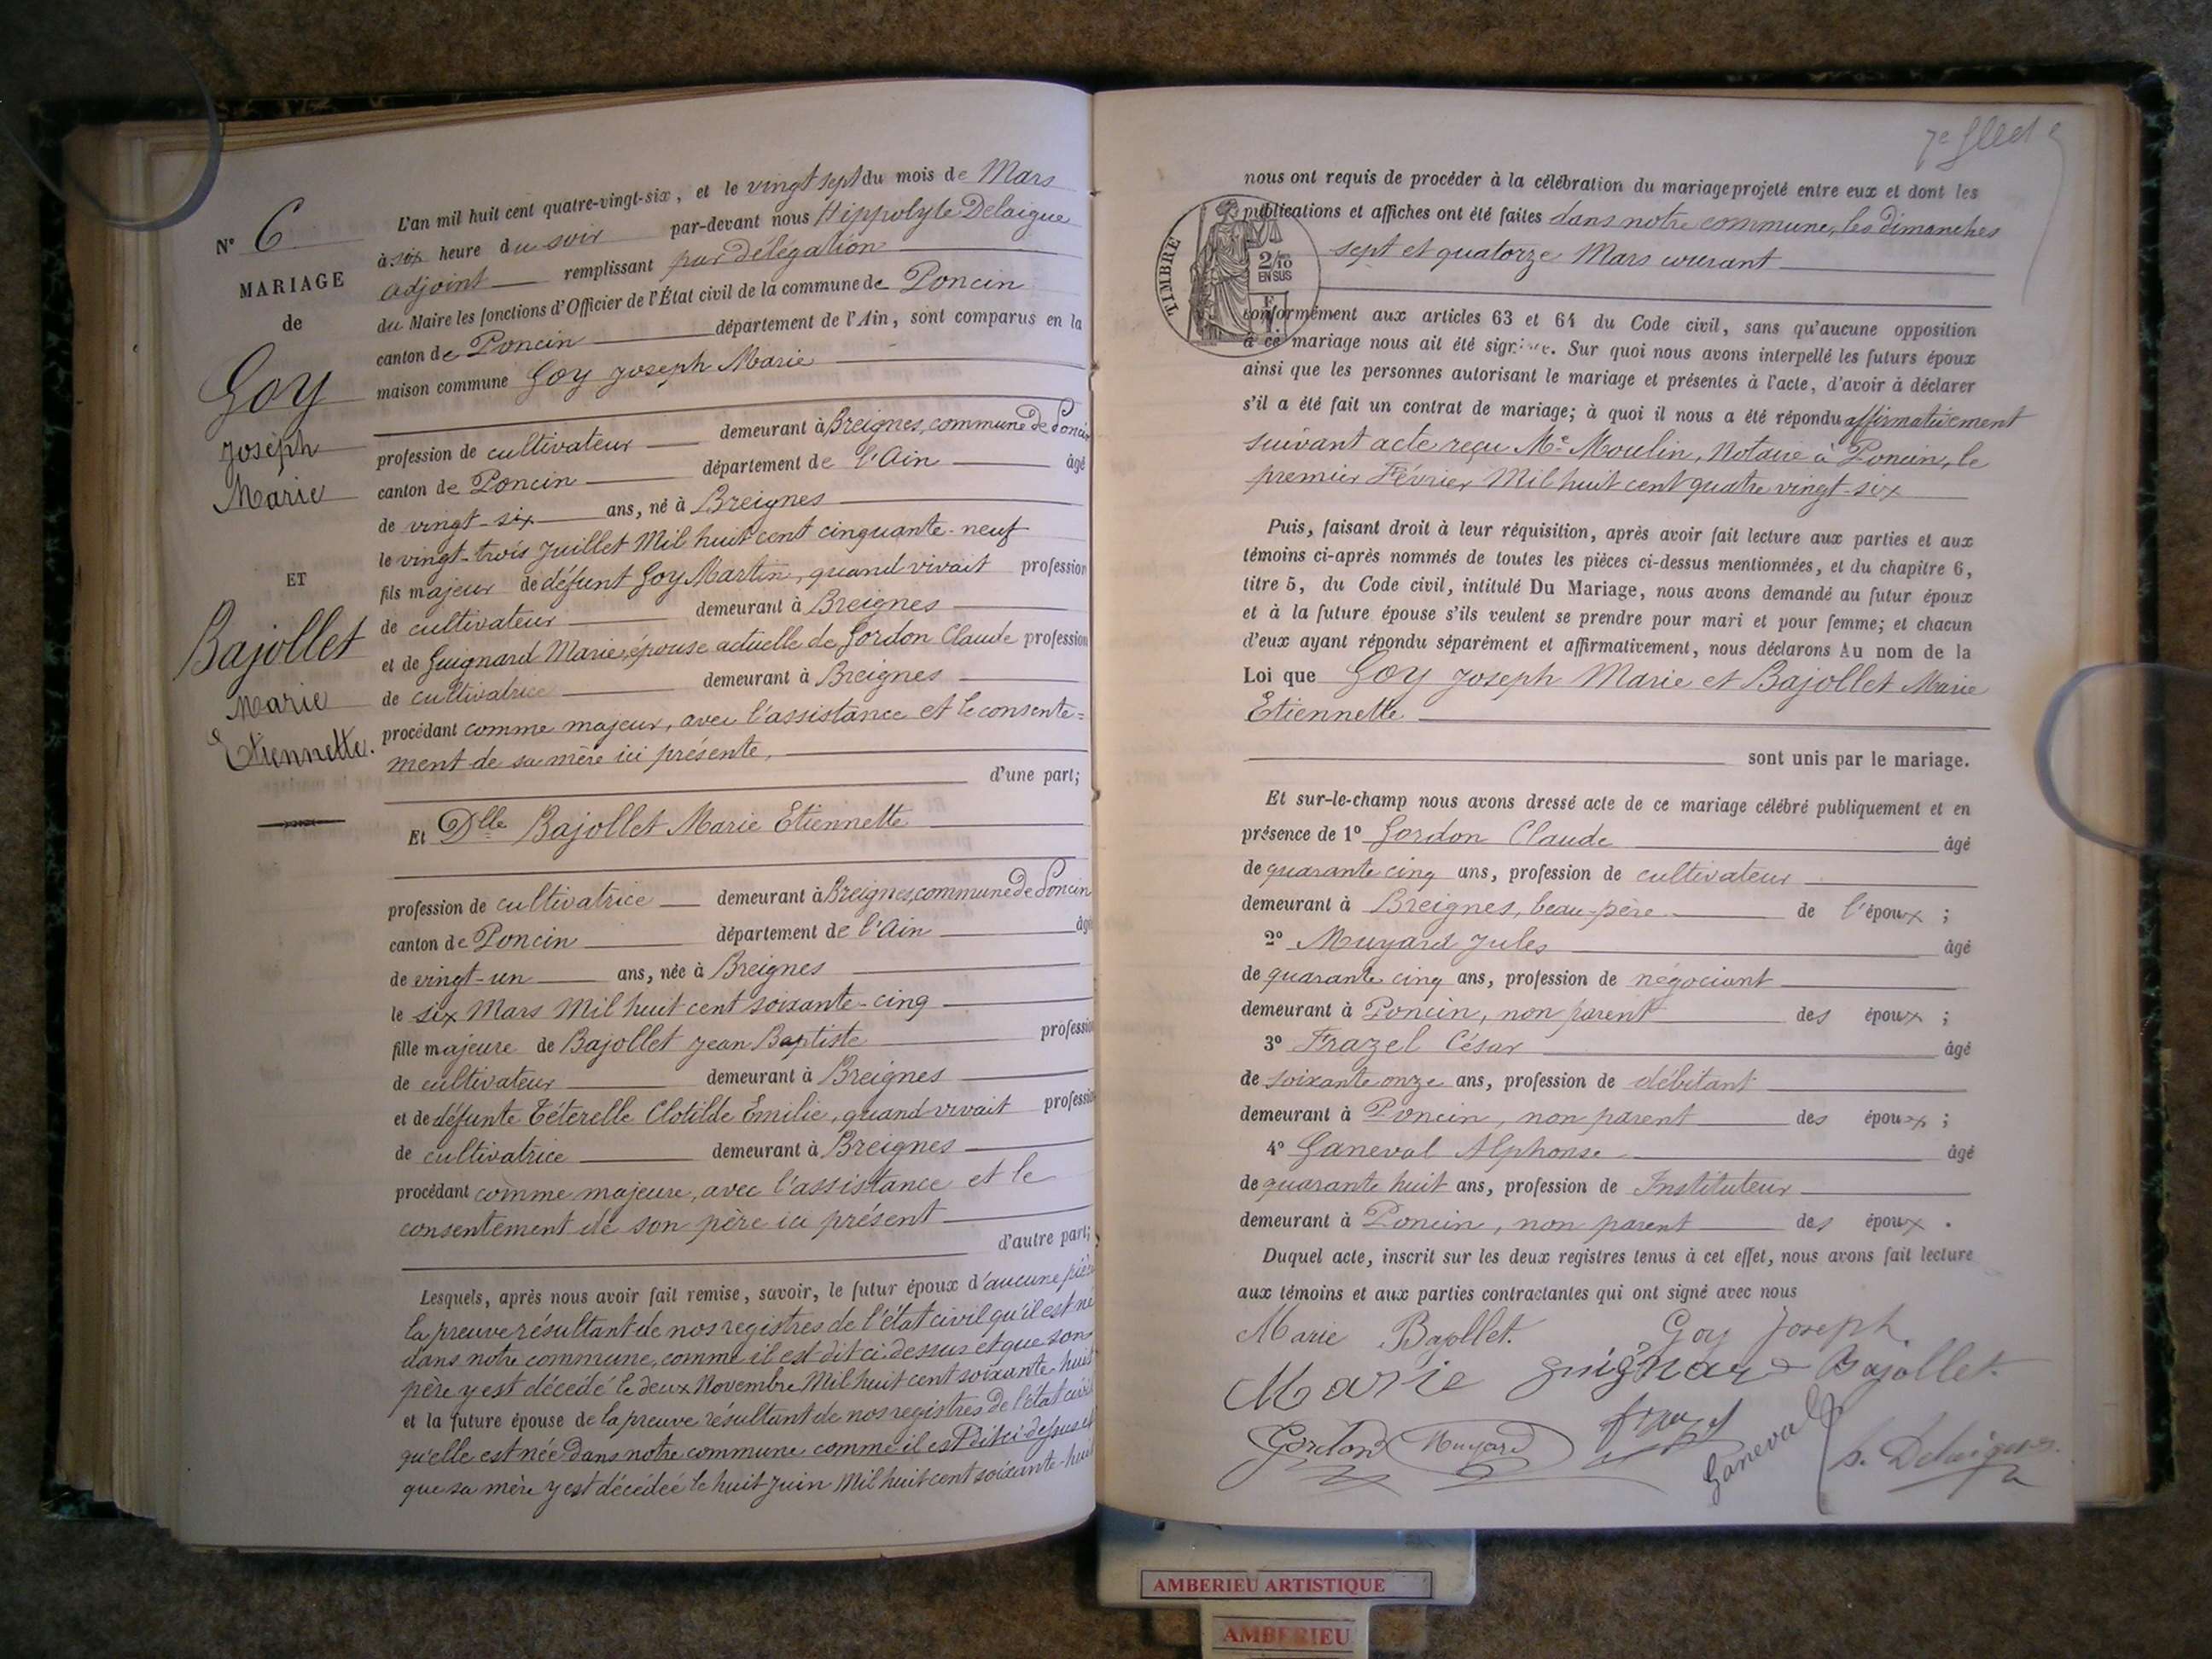 N° 6
MARIAGE
de
Goy
Joseph
Marie
ET
Bajollet
Marie
Etiennette.
L'an mil huit cent quatre-vingt-six, et le vingt sept du mois de Mars
à six heure du soir par-devant nous Hippolyte Delaigue
adjoint remplissant par délégation
du Maire les fonctions d'Officier de l'État civil de la commune de Poncin
canton de Poncin département de l'Ain, sont comparus en la
maison commune Goy Joseph Marie
profession de cultivateur demeurant à Breignes, commune de Poncin
canton de Poncin département de l'Ain âgé
de vingt-six ans, né à Breignes
le vingt-trois Juillet Mil huit cent cinquante-neuf
fils majeur de défunt Goy Martin, quand vivait profession
de cultivateur demeurant à Breignes
et de Guignard Marie, épouse actuelle de Gordon Claude profession
de cultivatrice demeurant à Breignes
procédant comme majeur, avec l'assistance et le consente=
ment de sa mère ici présente,
d'une part;
Et Dlle Bajollet Marie Etiennette
profession de cultivatrice demeurant à Breignes, commune de Poncin
canton de Poncin département de l'Ain âgé
de vingt-un ans, née à Breignes
le six Mars Mil huit cent soixante-cinq
fille majeure de Bajollet Jean Baptiste profession
de cultivateur demeurant à Breignes
et de défunte Téterelle Clotilde Emilie, quand vivait profession
de cultivatrice demeurant à Breignes
procédant comme majeure, avec l'assistance et le
consentement de son père ici présent
d'autre part;
Lesquels, après nous avoir fait remise, savoir, le futur époux d'aucune pièce
la preuve résultant de nos registres de l'état civil qu'il est né
dans notre commune, comme il est dit ci-dessus et que son
père y est décédé le deux Novembre Mil huit cent soixante-huit
et la future épouse de la preuve résultant de nos registres de l'état civil
qu'elle est née dans notre commune comme il est dit ci-dessus et
que sa mère y est décédée le huit Juin Mil huit cent soixante-huit
7e
TIMBRE
2/10
EN SUS
nous ont requis de procéder à la célébration du mariage projeté entre eux et dont les
publications et affiches ont été faites dans notre commune, les dimanches
sept et quatorze Mars courant
conformément aux articles 63 et 64 du Code civil, sans qu'aucune opposition
à ce mariage nous ait été signifiée. Sur quoi nous avons interpellé les futurs époux
ainsi que les personnes autorisant le mariage et présentes à l'acte, d'avoir à déclarer
s'il a été fait un contrat de mariage; à quoi il nous a été répondu affirmativement
suivant acte reçu Me Moulin, Notaire à Poncin, le
premier Février Mil huit cent quatre vingt-six
Puis, faisant droit à leur réquisition, après avoir fait lecture aux parties et aux
témoins ci-après nommés de toutes les pièces ci-dessus mentionnées, et du chapitre 6,
titre 5, du Code civil, intitulé Du Mariage, nous avons demandé au futur époux
et à la future épouse s'ils veulent se prendre pour mari et pour femme; et chacun
d'eux ayant répondu séparément et affirmativement, nous déclarons Au nom de la
Loi que Goy Joseph Marie et Bajollet Marie
Etiennette
sont unis par le mariage.
Et sur-le-champ nous avons dressé acte de ce mariage célébré publiquement et en
présence de 1° Gordon Claude âgé
de quarante cinq ans, profession de cultivateur
demeurant à Breignes, beau-père de l'époux ;
2° Muyard Jules âgé
de quarante cinq ans, profession de négociant
demeurant à Poncin, non parent des époux ;
3° Frazel César âgé
de soixante onze ans, profession de débitant
demeurant à Poncin, non parent des époux ;
4° Ganeval Alphonse âgé
de quarante huit ans, profession de Instituteur
demeurant à Poncin, non parent des époux .
Duquel acte, inscrit sur les deux registres tenus à cet effet, nous avons fait lecture
aux témoins et aux parties contractantes qui ont signé avec nous
Marie Bajollet. Goy Joseph
Marie guignard Bajollet
Gordon Muyard frazel Ganeval h. Delaigue
AMBERIEU ARTISTIQUE
AMBERIEU